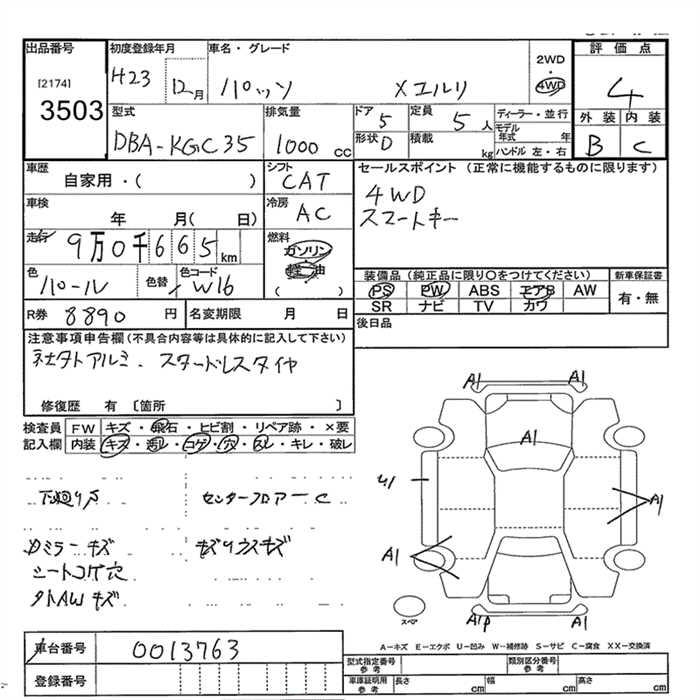 出品番号 初度登録年月 車名・グレード 2WD・4WD 評価点
[2174]
3503
H23 12月 パッソ Xユルリ 4
外装 内装
B C
型式 排気量 ドア 定員 ディーラー・並行
DBA-KGC35 1000cc 5 5人
形状 D 積載 kg モデル年式 年
ハンドル 左・右
車歴 シフト セールスポイント (正常に機能するものに限ります)
自家用・( ) CAT
4WD
スマートキー
車検 年 月( 日) 冷房 AC
走行 9万0千665km 燃料 ガソリン
軽油
( )
色 パール 色替 色コード W16
装備品(純正品に限り○をつけてください) 新車保証書
PS PW ABS エアB AW 有・無
SR ナビ TV カワ
R券 8890円 名変期限 月 日
後日品
注意事項申告欄(不具合内容等は具体的に記入して下さい)
社外アルミ.スタッドレスタイヤ
修復歴 有〔箇所 〕
検査員記入欄 FW キズ・飛石・ヒビ割・リペア跡・×要
内装 キズ・汚レ・コゲ・穴・スレ・キレ・破レ
下廻りS センターフロアーC
カミラーキズ キズリウスキズ
シートコゲ穴
タトAWキズ
A1 A1
A1
U1
A1
A1
スペア
A1P A1
A-キズ E-エクボ U-凹み W-補修跡 S-サビ C-腐食 XX-交換済
車台番号 0013763
登録番号
型式指定番号参考 類別区分番号参考
車庫証明用参考 長さ cm 幅 cm 高さ cm